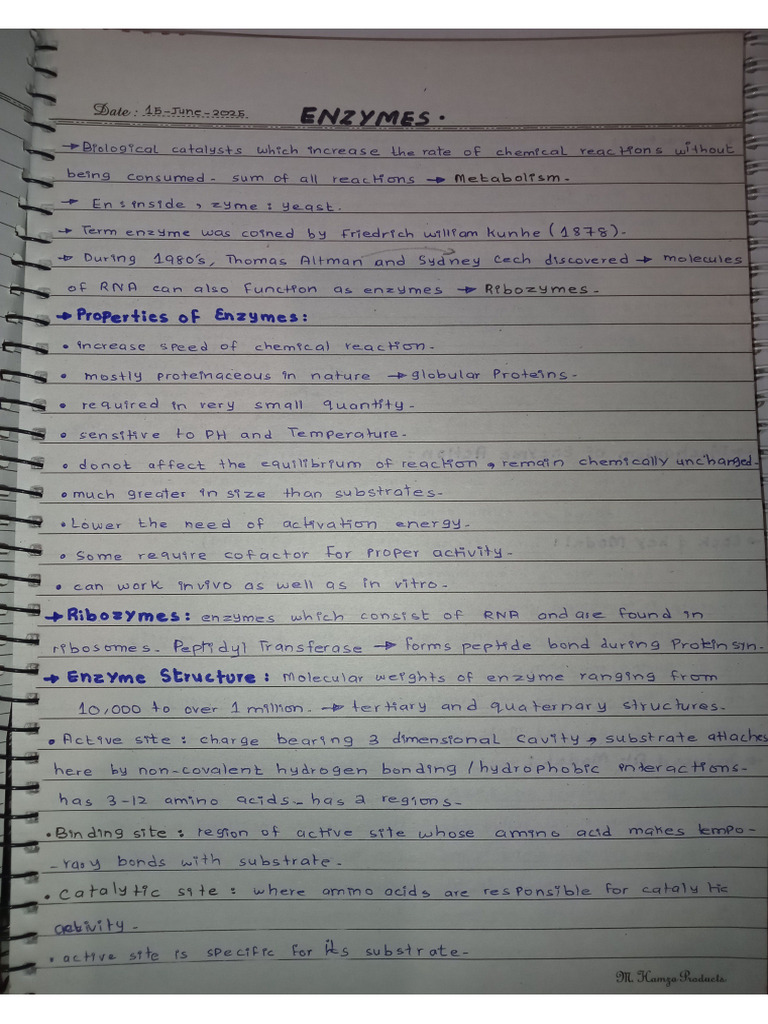 Date: 15-June-2025 ENZYMES.
→ Biological catalysts which increase the rate of chemical reactions without
being consumed- sum of all reactions → Metabolism.
→ En: inside, zyme: yeast.
→ Term enzyme was coined by Friedrich william Kunhe (1878)-
→ During 1980's, Thomas Altman and Sydney Cech discovered → molecules
of RNA can also function as enzymes → Ribozymes-
→ Properties of Enzymes:
• increase speed of chemical reaction-
• mostly proteinaceous in nature → globular Proteins-
• required in very small quantity-
• sensitive to PH and Temperature-
• donot affect the equilibrium of reaction, remain chemically uncharged-
• much greater in size than substrates-
• Lower the need of activation energy-
• Some require cofactor for proper activity-
• can work invivo as well as in vitro-
→ Ribozymes: enzymes which consist of RNA and are found in
ribosomes- Peptidyl Transferase → forms peptide bond during Protinsin-
→ Enzyme Structure: Molecular weights of enzyme ranging from
10,000 to over 1 million- → tertiary and quaternary structures-
• Active site: charge bearing 3 dimensional cavity, substrate attaches
here by non-covalent hydrogen bonding / hydrophobic interactions-
has 3-12 amino acids- has 2 regions-
• Binding site: region of active site whose amino acid makes tempo-
-rary bonds with substrate-
• Catalytic site: where amino acids are responsible for catalytic
activity-
• active site is specific for its substrate-
M. Hamza Products